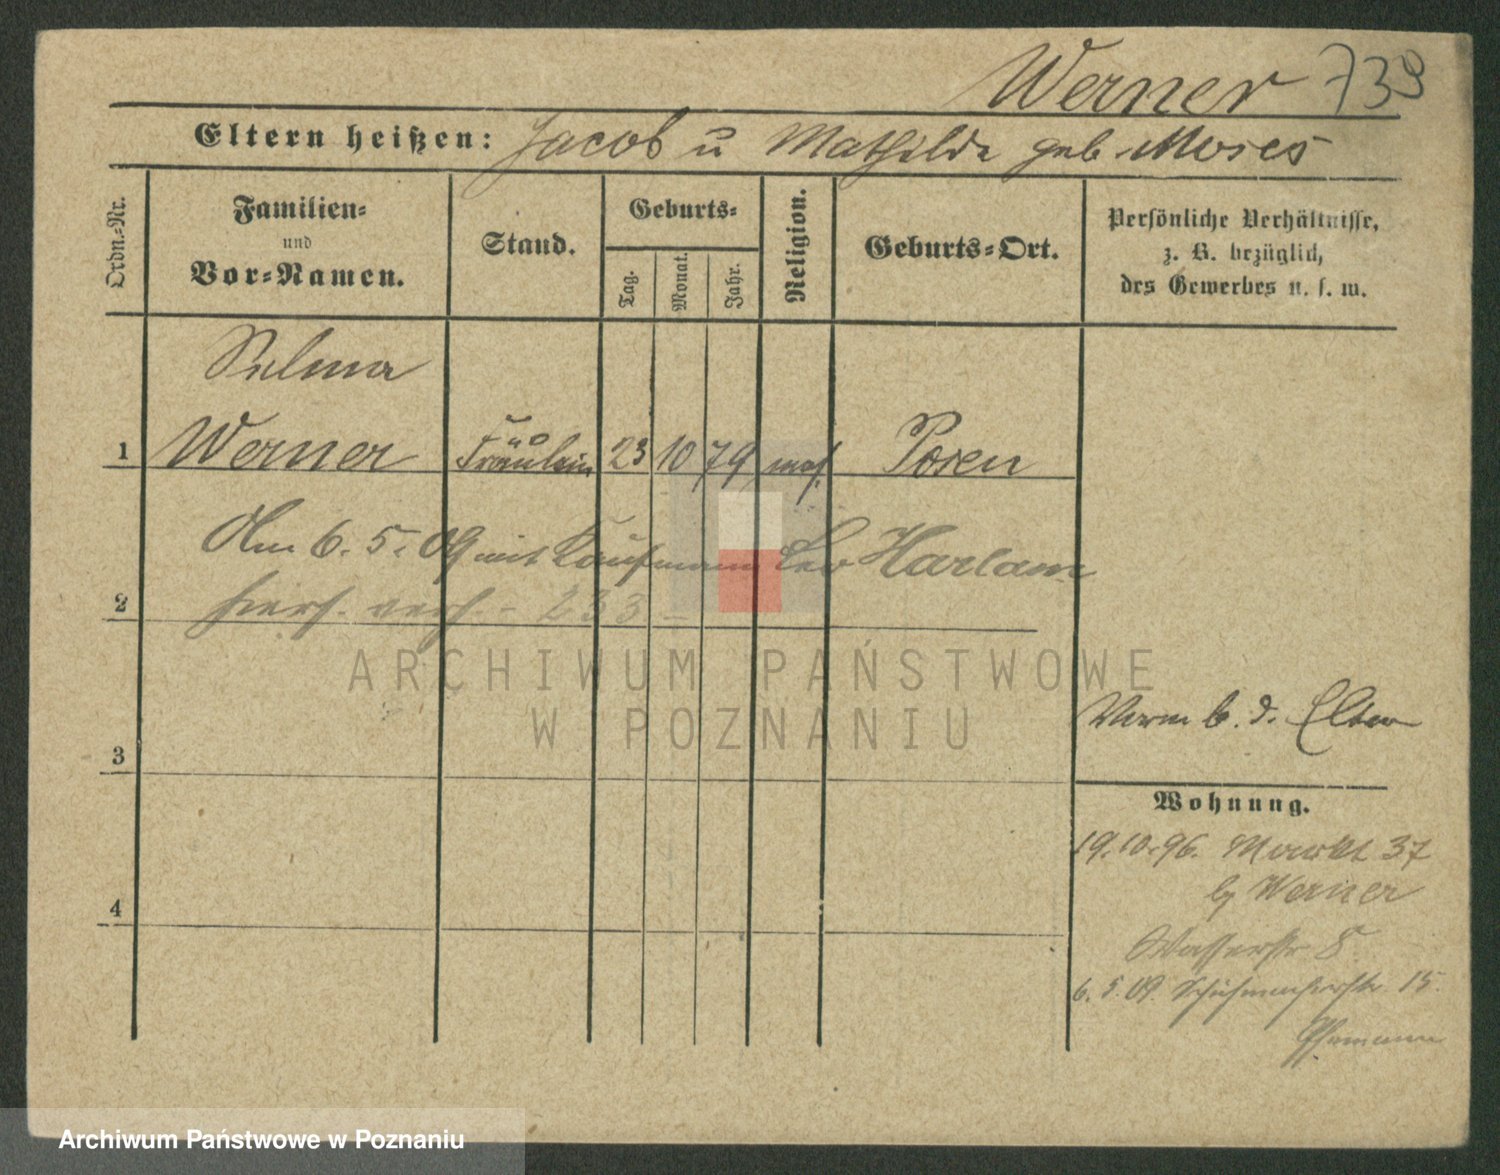 Werner 739
Eltern heißen: Jacob u Mathilde geb Moses
Ordn.-Nr.
Familien-
und
Vor-Namen.
Stand.
Geburts-
Tag.
Monat.
Jahr.
Religion.
Geburts-Ort.
Persönliche Verhältnisse,
z. B. bezüglich
des Gewerbes u. s. w.
Selma
1 Werner Fräulein 23 10 79 mos. Posen
Am 6. 5. 09 mit Kaufmann Leo Harlam
2 hiers. verh. - 233 -
ARCHIWUM PAŃSTWOWE
W POZNANIU
3
4
b. d. Eltern
Wohnung.
19.10.96. Markt 37
by Werner
Wasserstr 8.
6. 5. 09. Schuhmacherstr. 15.
Ehemann
Archiwum Państwowe w Poznaniu